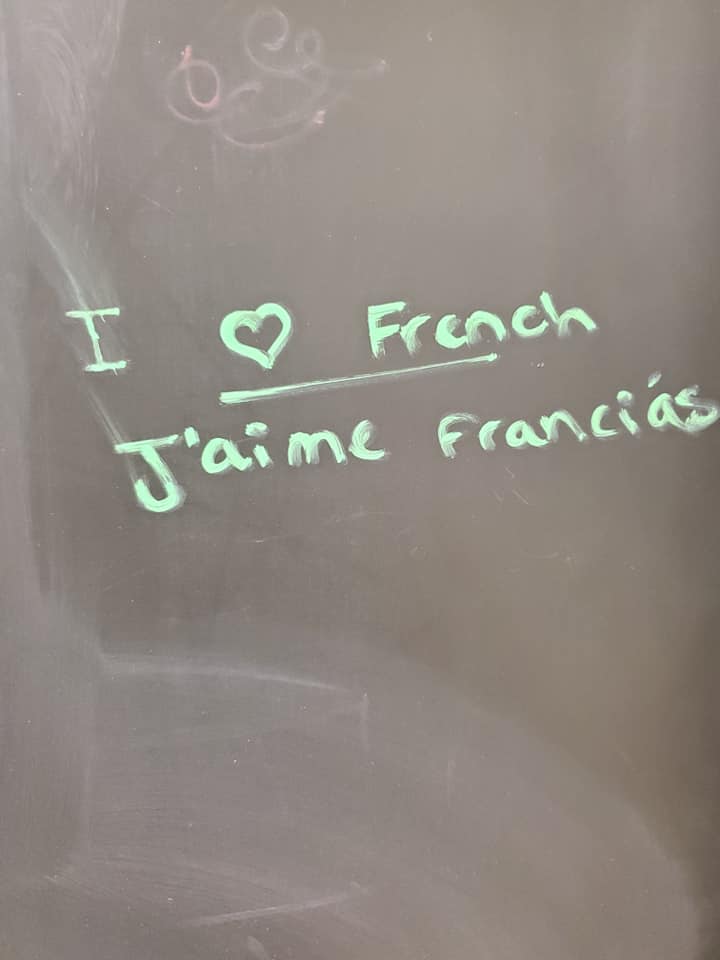 I ♡ French
J'aime Franciás